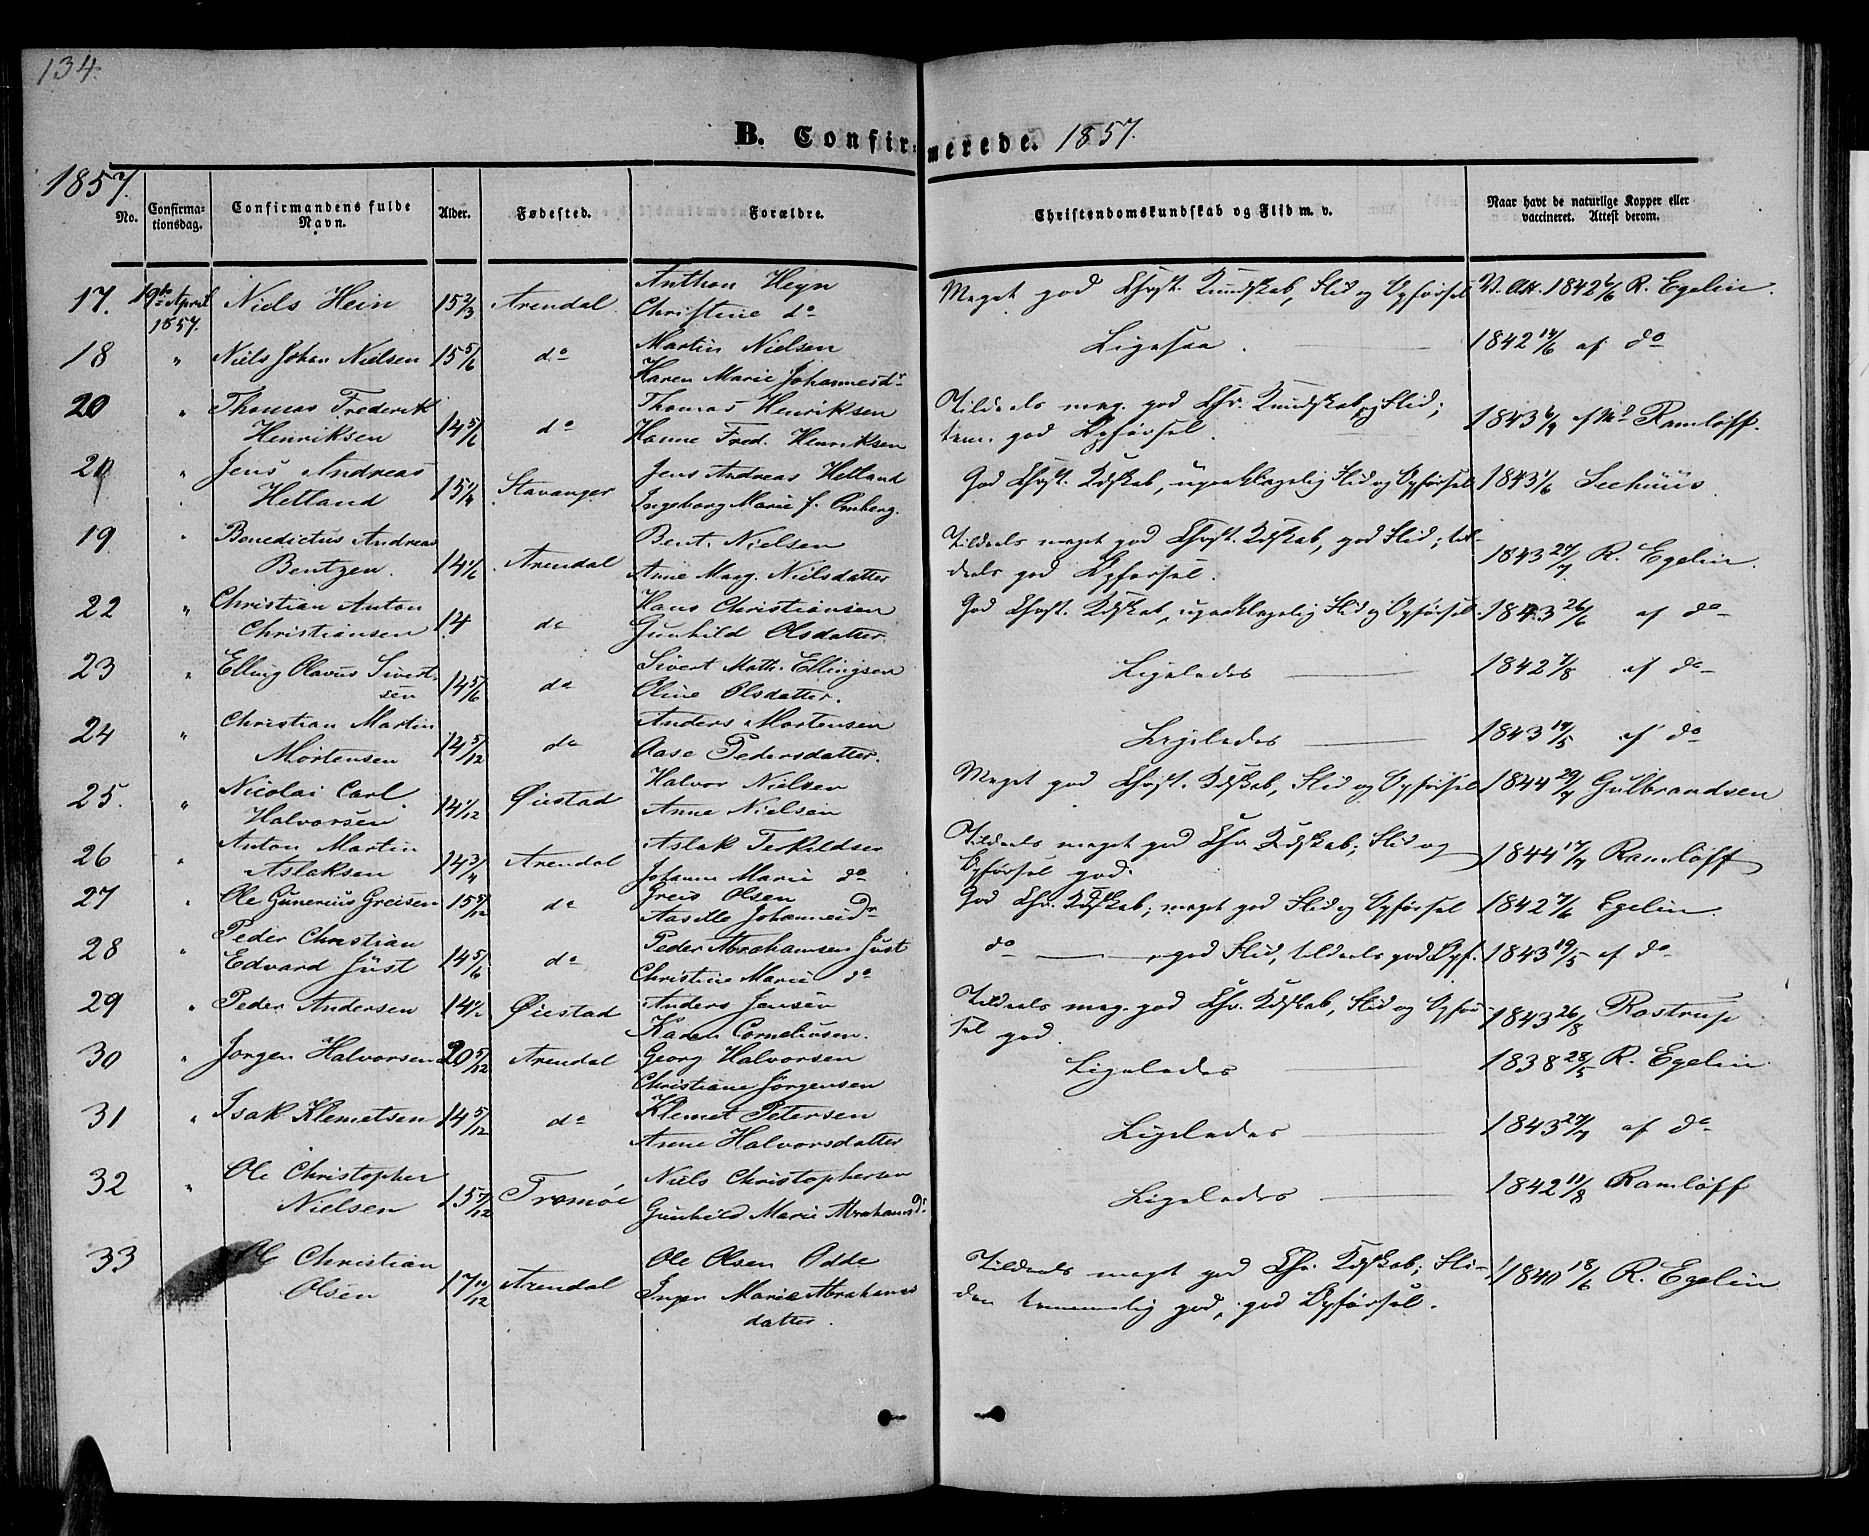 134.
B. Confirmerede. 1857.
1857.
No.
Confirmationsdag.
Confirmandens fulde Navn.
Alder.
Fødested.
Forældre.
Christendomskundskab og Flid m. v.
Naar havt de naturlige Kopper eller vaccineret. Attest derom.
17. 19de April 1857. Niels Hein 15 2/3 Arendal. Anthon Heyn Christine do Meget god Chrst. Kundskab, Flid og Opførsel V. Att. 1842 6/6 R. Egelin.
18 " Niels Johan Nielsen 15 5/6 do Martin Nielsen Karen Marie Johannesdr Ligesaa. 1842 14/6 af do
20 " Thomas Frederik Henriksen 14 5/6 do Thomas Henriksen Hanne Fred. Henriksen Tildeels meg. god Chr. Kundskab og Flid; tem. god Opførsel. 1843 6/9 af Md Ramløff.
21 " Jens Andreas Hetland 15 1/4 Stavanger Jens Andreas Hetland Ingeborg Marie f. Omberg. God Chrst. Kdskab, upaaklagelig Flid og Opførsel 1843 1/6 Seehuus.
19 " Benedictus Andreas Bentzen. 14 1/6 Arendal Bent. Nielsen Anne Marg. Nielsdatter Tildeels meget god Chrst. Kdskab, god Flid; tildeels god Opførsel. 1843 27/7 R. Egelin.
22 " Christian Anton Christiansen 14 do Hans Christiansen Gunhild Olsdatter God Chrst. Kdskab, upaaklagelig Flid og Opførsel. 1843 26/6 af do
23 " Elling Olavus Sivertsen 14 5/6 do Sivert Math. Ellingsen Oline Olsdatter. Ligeledes 1842 7/8 af do
24 " Christian Martin Mortensen 14 5/12 do Anders Mortensen Aase Pedersdatter. Ligeledes 1843 19/5 af do
25. " Nicolai Carl Halvorsen 14 1/12 Øiestad Halvor Nielsen Anne Nielsen Meget god Chrst. Kdskab, Flid og Opførsel 1844 29/7 Gulbrandsen
26 " Anton Martin Aslaksen 14 3/4 Arendal Aslak Terkildsen Johanne Marie do Tildeels meget god Chr. Kdskab; Flid og Opførsel god. 1844 17/7 Ramløff
27 " Ole Gunerius Greisen 15 5/12 do Greis Olsen Aasille Johannesdr God Chr. Kdskab; meget god Flid og Opførsel 1842 7/6 Egelin.
28 " Peder Christian Edvard Just 14 5/6 do Peder Abrahamsen Just Christine Marie do do god Flid, tildeels god Opf. 1843 19/5 af do
29 " Peder Andersen 14 1/2 Øiestad Anders Jansen Karen Corneliusen. Tildeels meg. god Chr. Kdskab, Flid og Opførsel god. 1843 26/8 Rostrup
30 " Jørgen Halvorsen 20 5/12 Arendal Georg Halvorsen Christiane Jørgensen Ligeledes 1838 28/5 R. Egelin
31 " Isak Klemetsen 14 5/12 do Klemet Petersen Anne Halvorsdatter Ligeledes 1843 27/7 af do
32 " Ole Christopher Nielsen 15 7/12 Tromøe Niels Christophersen Gunhild Marie Abrahamsdr Ligeledes 1842 11/8 Ramløff
33 Ole Christian Olsen 17 11/12 Arendal Ole Olsen Odde Inger Marie Abrahamsdatter. Tildeels meget god Chr. Kdskab; Fliden temmelig god, god Opførsel. 1840 18/6 R. Egelin